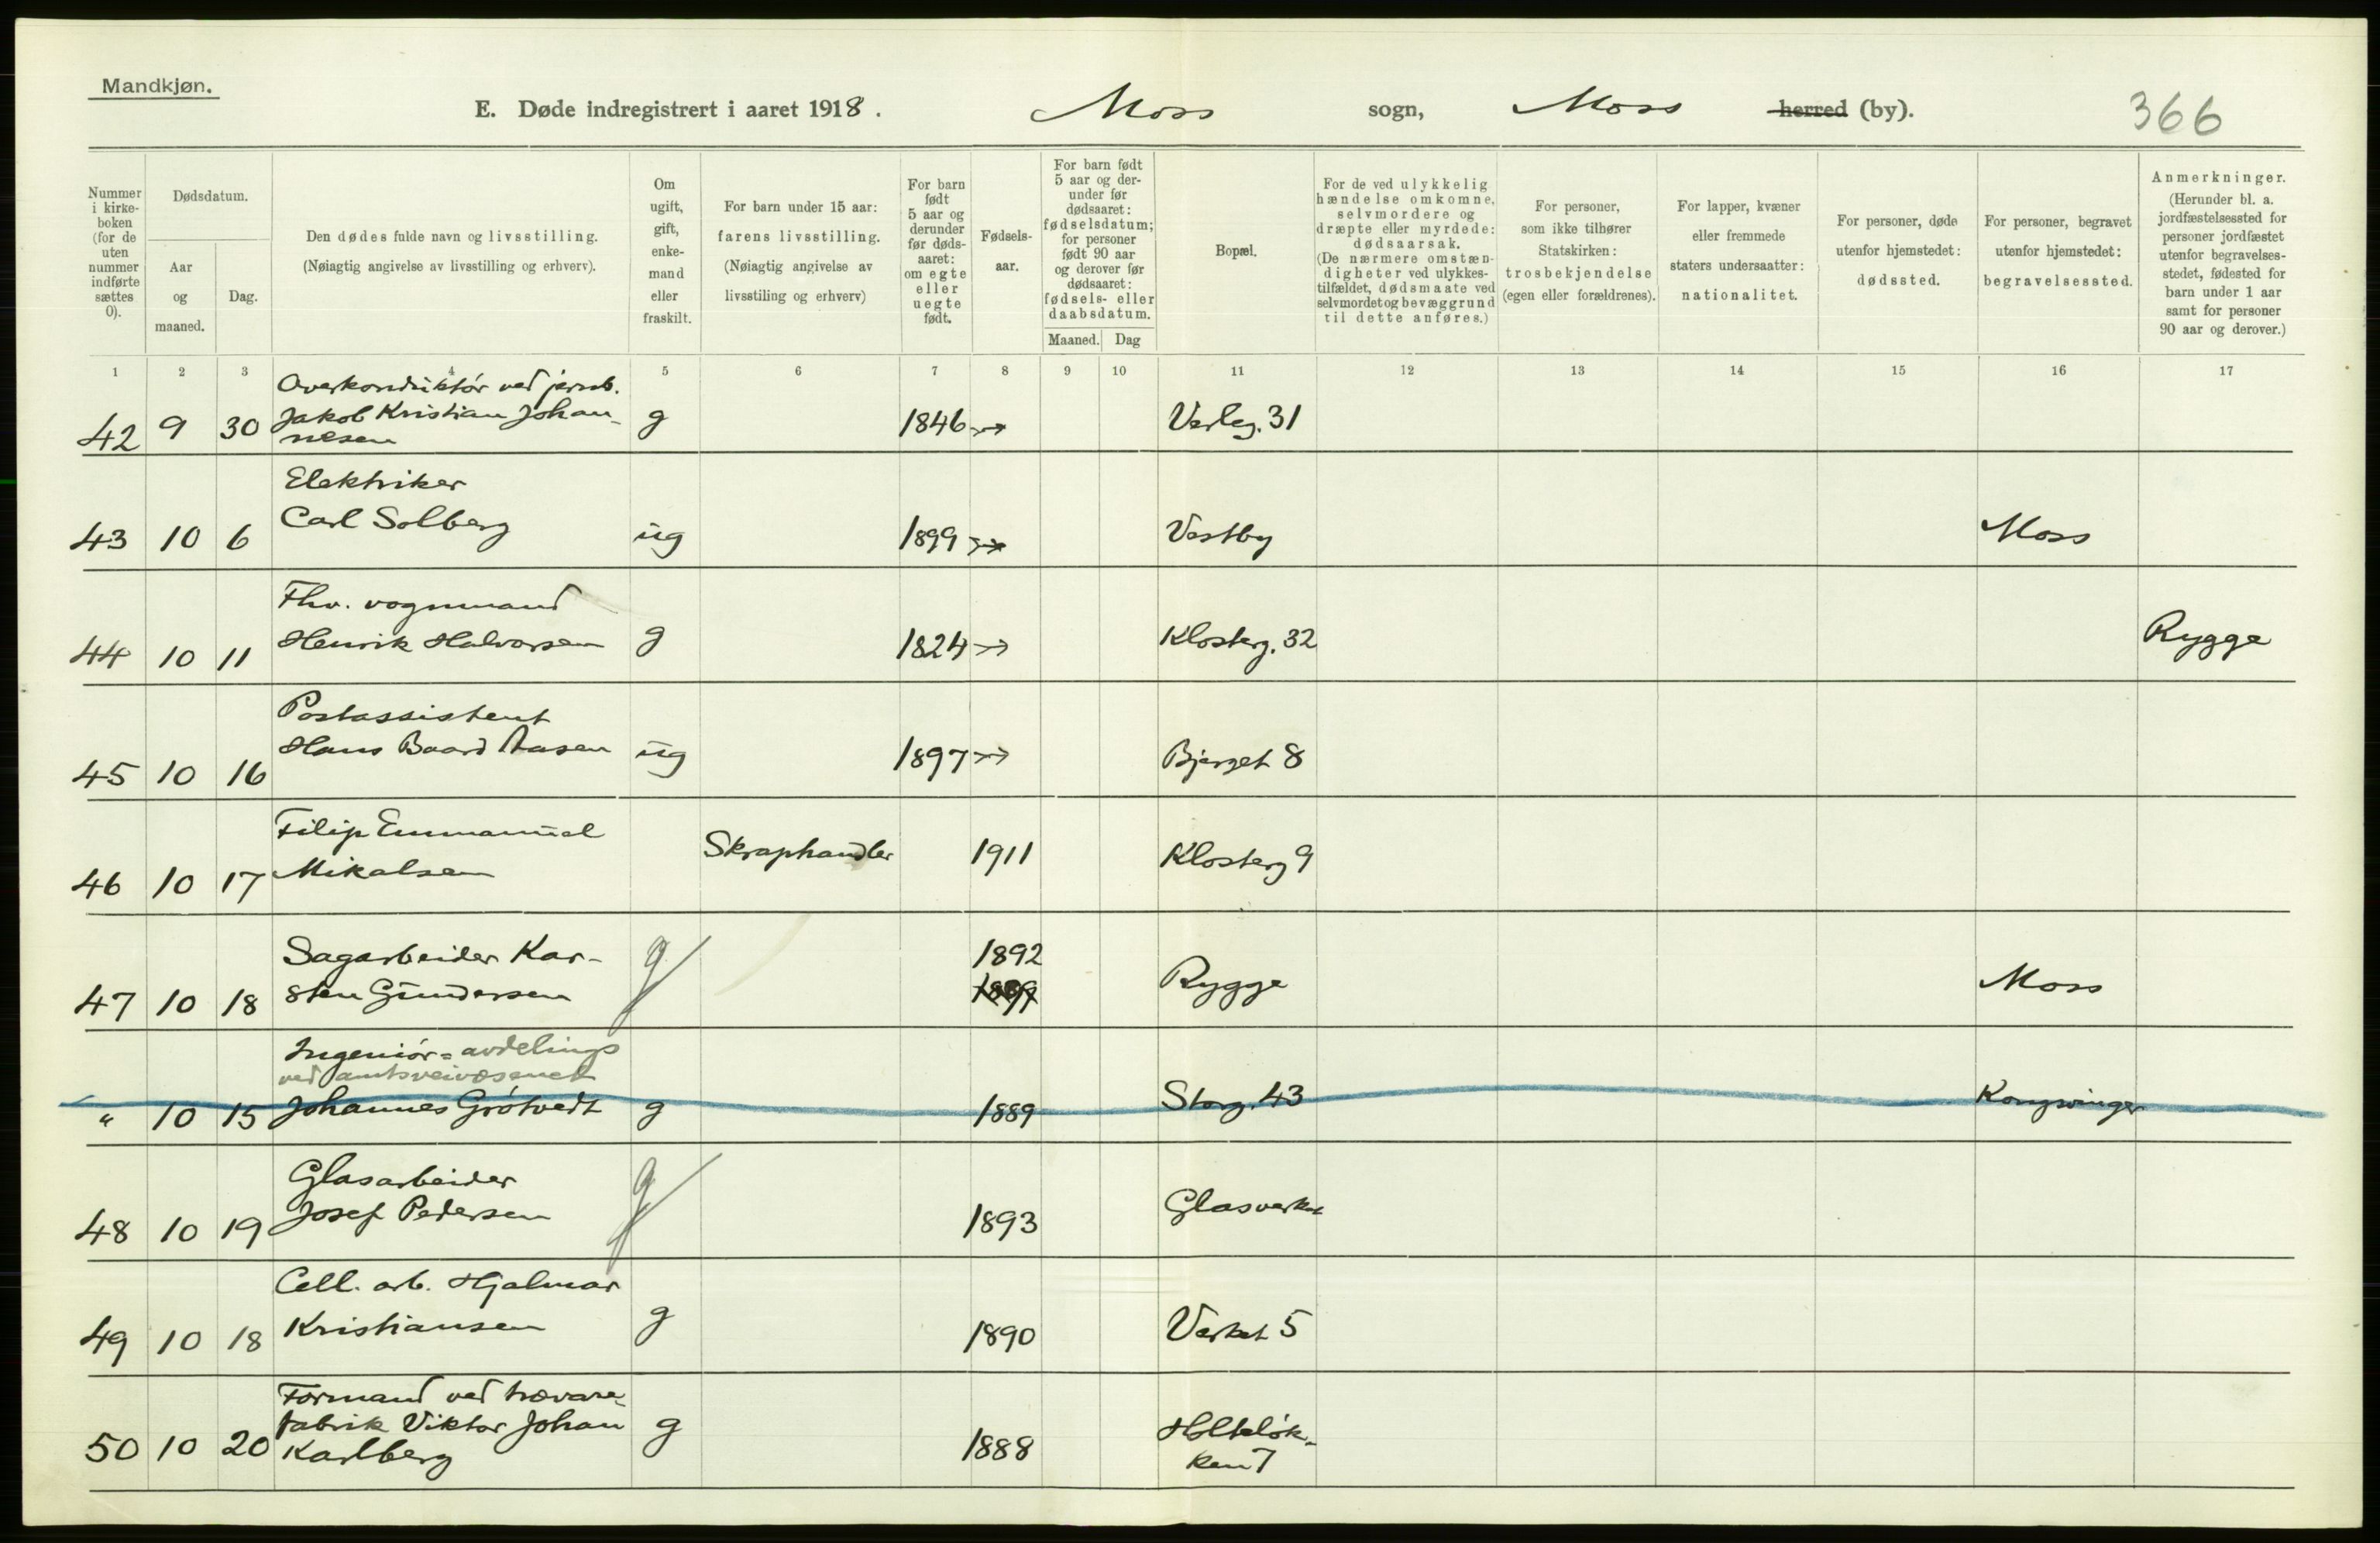 Mandkjøn.
E. Døde indregistrert i aaret 1918. Moss sogn, Moss herred (by). 366
Nummer i kirke-boken (for de uten nummer indførte sættes 0).
Dødsdatum.
Aar og maaned.
Dag.
Den dødes fulde navn og livsstilling.
(Nøiagtig angivelse av livsstilling og erhverv).
Om ugift, gift, enke-mand eller fraskilt.
For barn under 15 aar: farens livsstilling.
(Nøiagtig angivelse av livsstiling og erhverv)
For barn født 5 aar og derunder før døds-aaret: om egte eller uegte født.
Fødsels-aar.
For barn født 5 aar og der-under før dødsaaret: fødselsdatum; for personer født 90 aar og derover før dødsaaret: fødsels- eller daabsdatum.
Maaned. Dag
Bopæl.
For de ved ulykkelig hændelse omkomne, selvmordere og dræpte eller myrdede: dødsaarsak.
(De nærmere omstæn-digheter ved ulykkes-tilfældet, dødsmaate ved selvmordet og bevæggrund til dette anføres.)
For personer, som ikke tilhører Statskirken: trosbekjendelse (egen eller forældrenes).
For lapper, kvæner eller fremmede staters undersaatter: nationalitet.
For personer, døde utenfor hjemstedet: dødssted.
For personer, begravet utenfor hjemstedet: begravelsessted.
Anmerkninger.
(Herunder bl. a. jordfæstelsessted for personer jordfæstet utenfor begravelses-stedet, fødested for barn under 1 aar samt for personer 90 aar og derover.)
1 2 3 4 5 6 7 8 9 10 11 12 13 14 15 16 17
Overkonduktör ved jernb.
42 9 30 Jakob Kristian Johan- g 1846 → Verleg. 31
nesen
Elektriker
43 10 6 Carl Solberg ug 1899 → Vestby Moss
Fhv. vognmand
44 10 11 Henrik Halvorsen g 1824 → Klosterg. 32 Rygge
Postassistent
45 10 16 Hans Baard Aasen ug 1897 → Bjerget 8
Filip Emmanuel
46 10 17 Mikalsen Skraphandler 1911 Klosterg 9
Sagarbeider Kar- g 1892
47 10 18 sten Gundersen Rygge Moss
Ingeniör = avdelings
ved amtsveivæsenet
" 10 15 Johannes Grötvedt g 1889 Storg. 43 Kongsvinger
Glasarbeider g
48 10 19 Josef Pedersen 1893 Glasverket
Cell. arb. Hjalmar
49 10 18 Kristiansen g 1890 Verket 5
Formand ved trævare-
fabrik Viktor Johan g Holteløk-
50 10 20 Karlberg 1888 ken 7